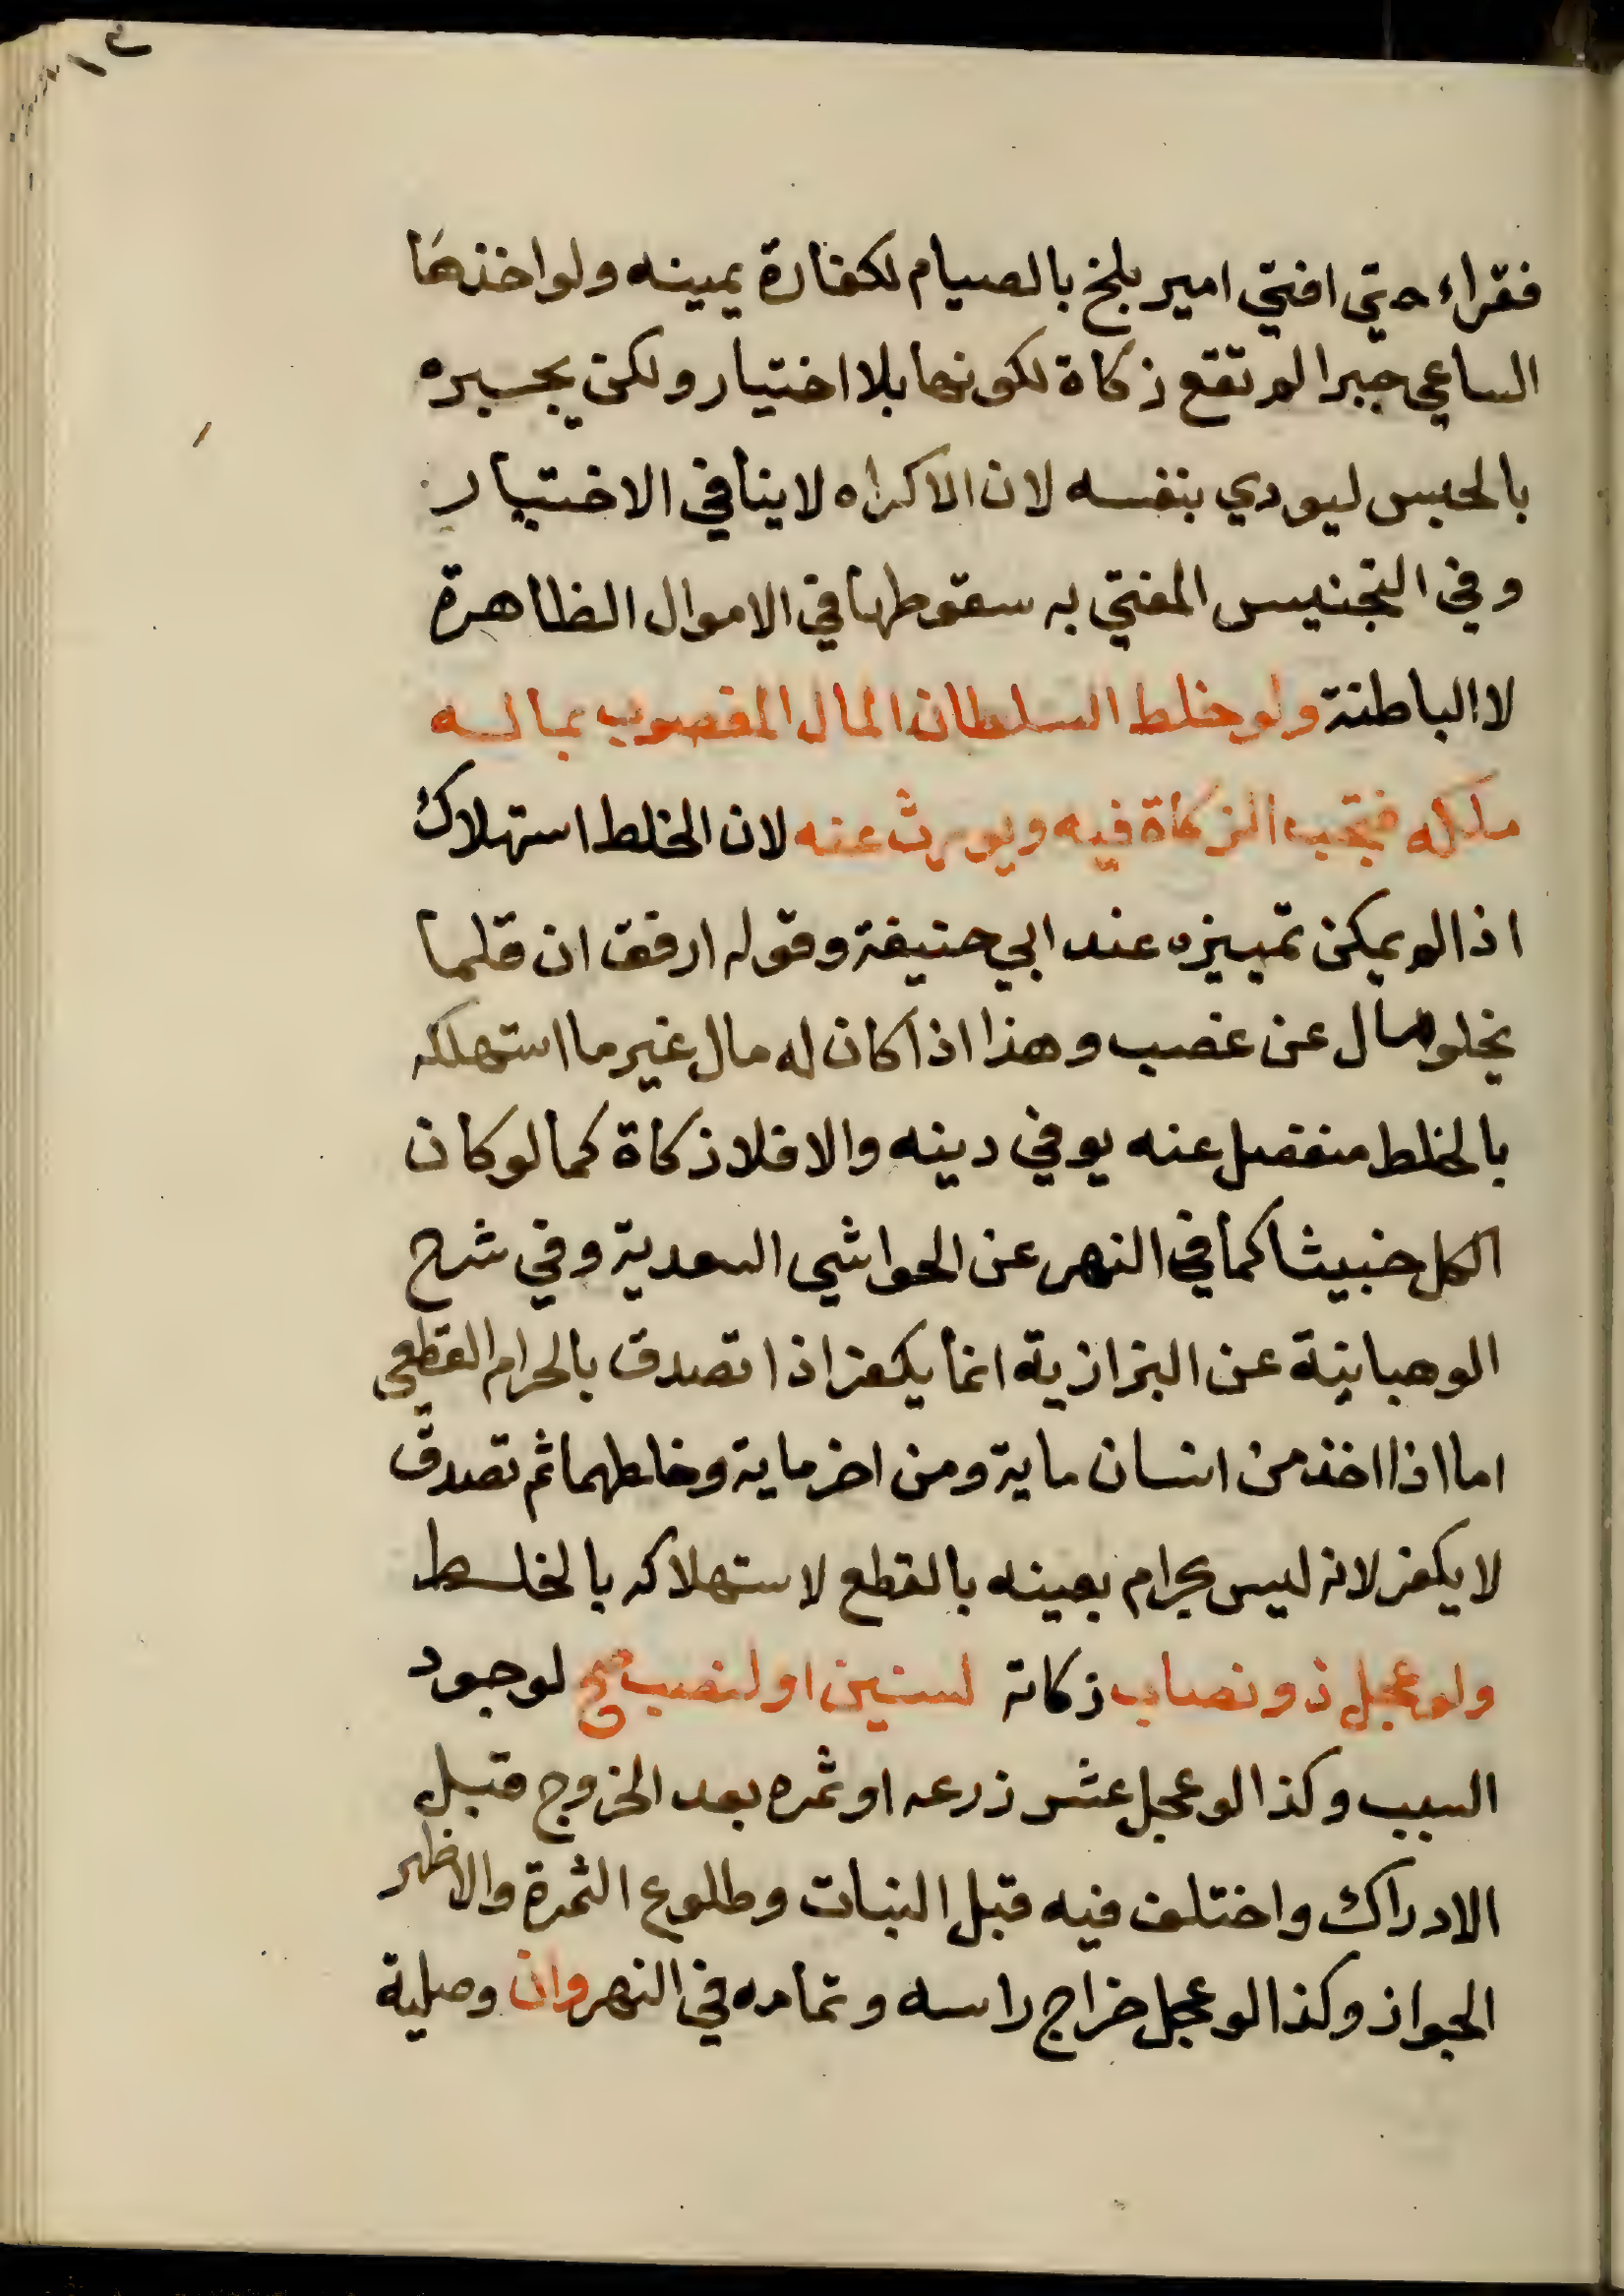 فقراء حتى افتى امير بلخ بالصيام لكفارة يمينه ولو اخذها
الساعي جبرا لم تقع زكاة لكونها بلا اختيار ولكن يجبره
بالحبس ليودي بنفسه لان الاكراه لاينافي الاختيار
وفي التجنيس المفتي به سقوطها في الاموال الظاهرة
لا الباطنة ولو خلط السلطان المال المغصوب بماله
ملكه فتجب الزكاة فيه ويورث عنه لان الخلط استهلاك
اذا لم يمكن تمييزه عند ابي حنيفة وقوله ارفق ان قلما
يخلو مال عن غصب وهذا اذا كان له مال غير ما استهلكه
بالخلط منفصل عنه يوفي دينه والا فلا زكاة كما لو كان
الكل خبيثا كما في النهر عن الحواشي السعدية وفي شرح
الوهبانية عن البزازية انما يكفر اذا تصدق بالحرام القطعي
اما اذا اخذ من انسان ماية ومن اخر ماية وخلطهما ثم تصدق
لا يكفر لانه ليس بحرام بعينه بالقطع لاستهلاكه بالخلط
ولو عجل ذو نصاب زكاته لسنين او لنصب صح لوجود
السبب وكذا لو عجل عشر زرعه او ثمره بعد الخروج قبل
الادراك واختلف فيه قبل النبات وطلوع الثمرة والاظهر
الجواز وكذا لو عجل خراج راسه وتمامه في النهر وان وصلية